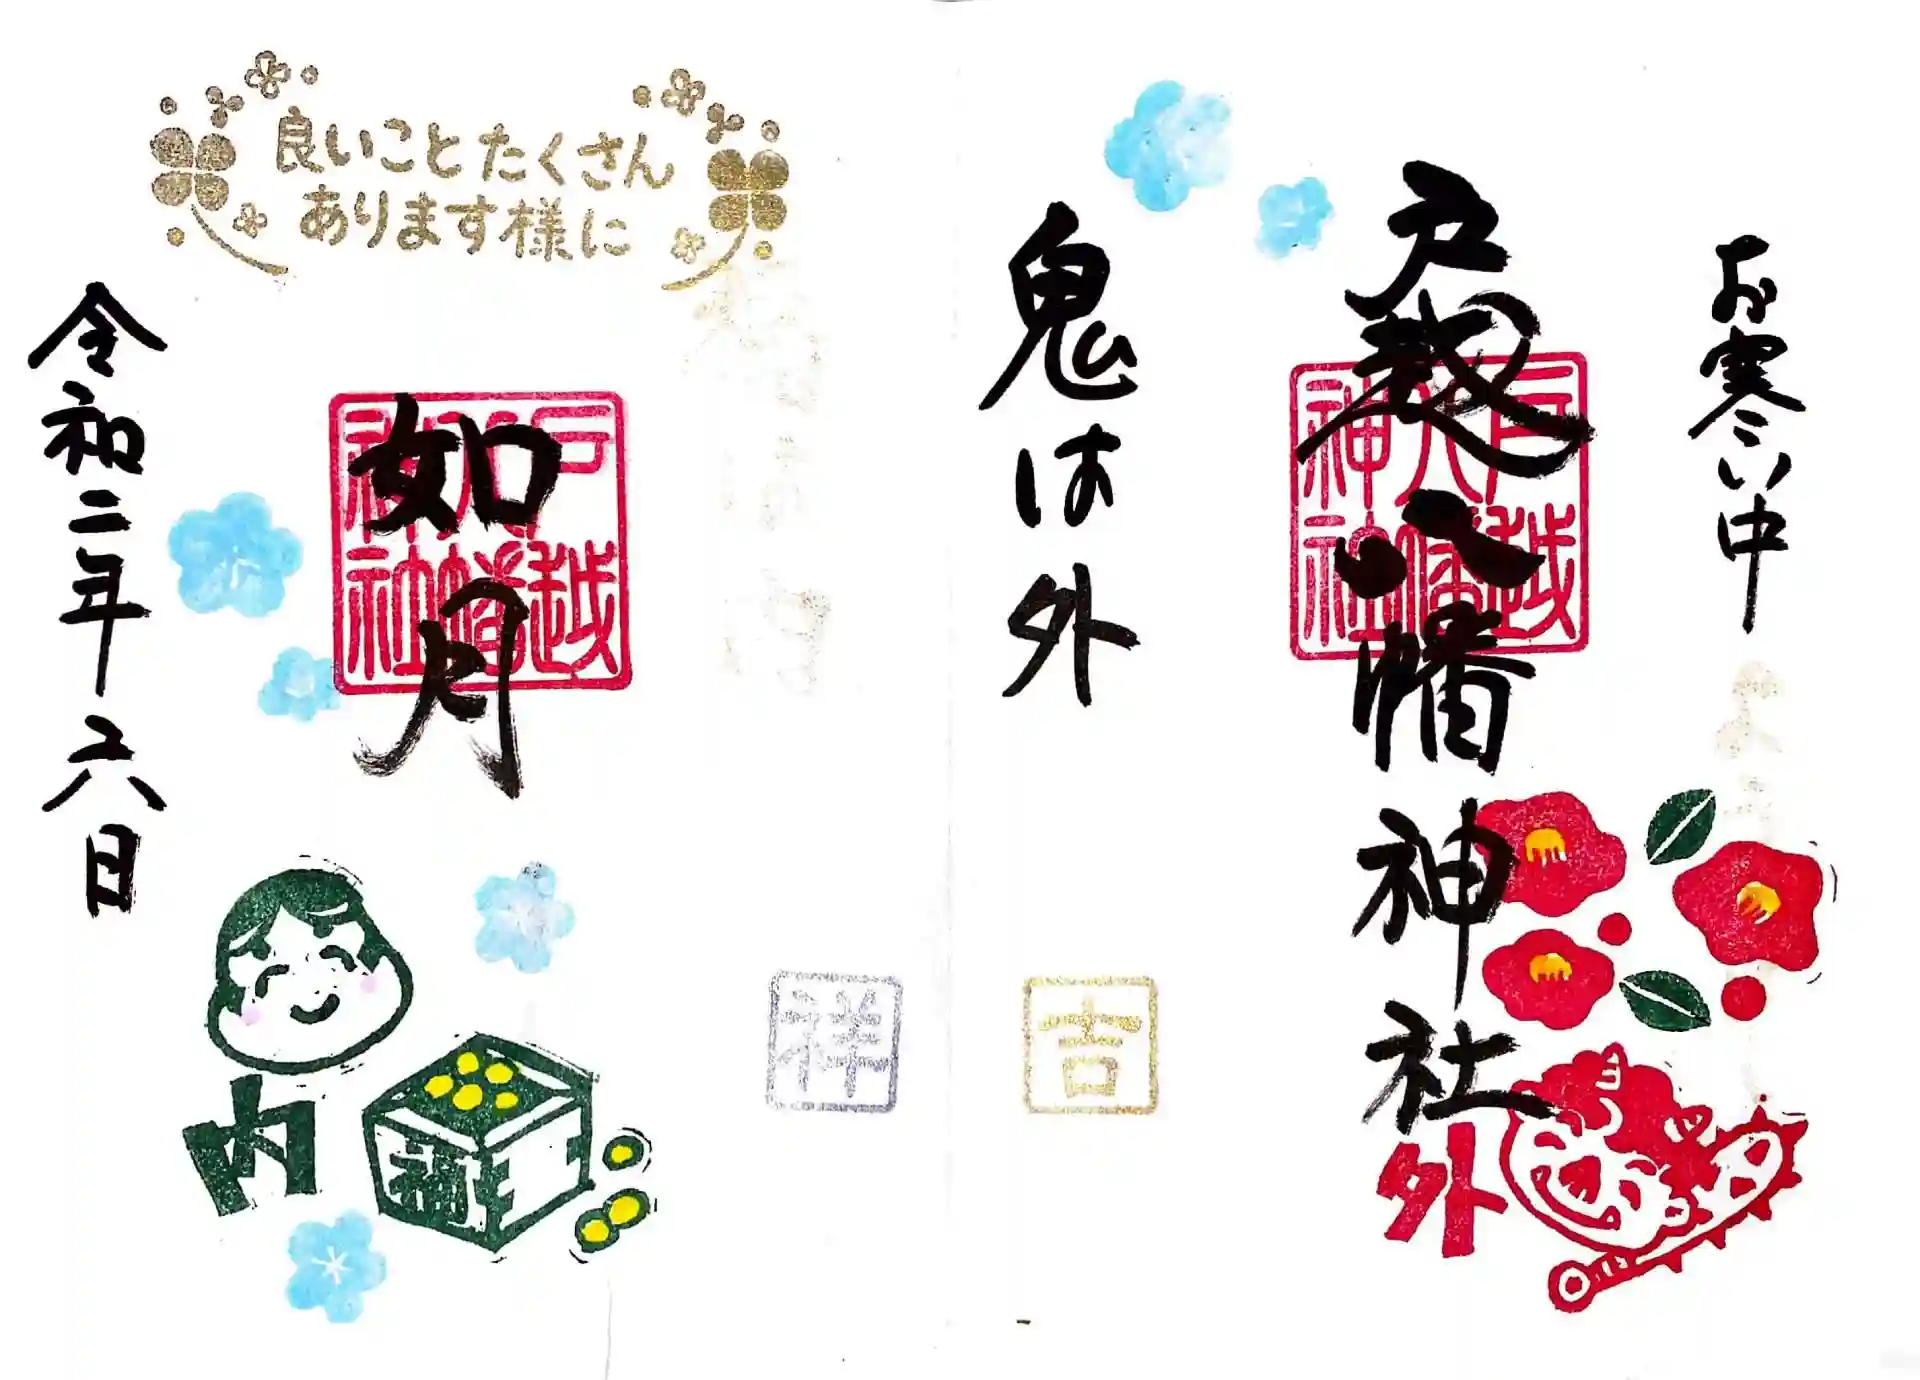 お寒い中
戸越八幡神社
戸越八幡神社
外
鬼は外
吉
良いことたくさん
あります様に
福は内
祥
如月
戸越八幡神社
福
内
令和二年 六日